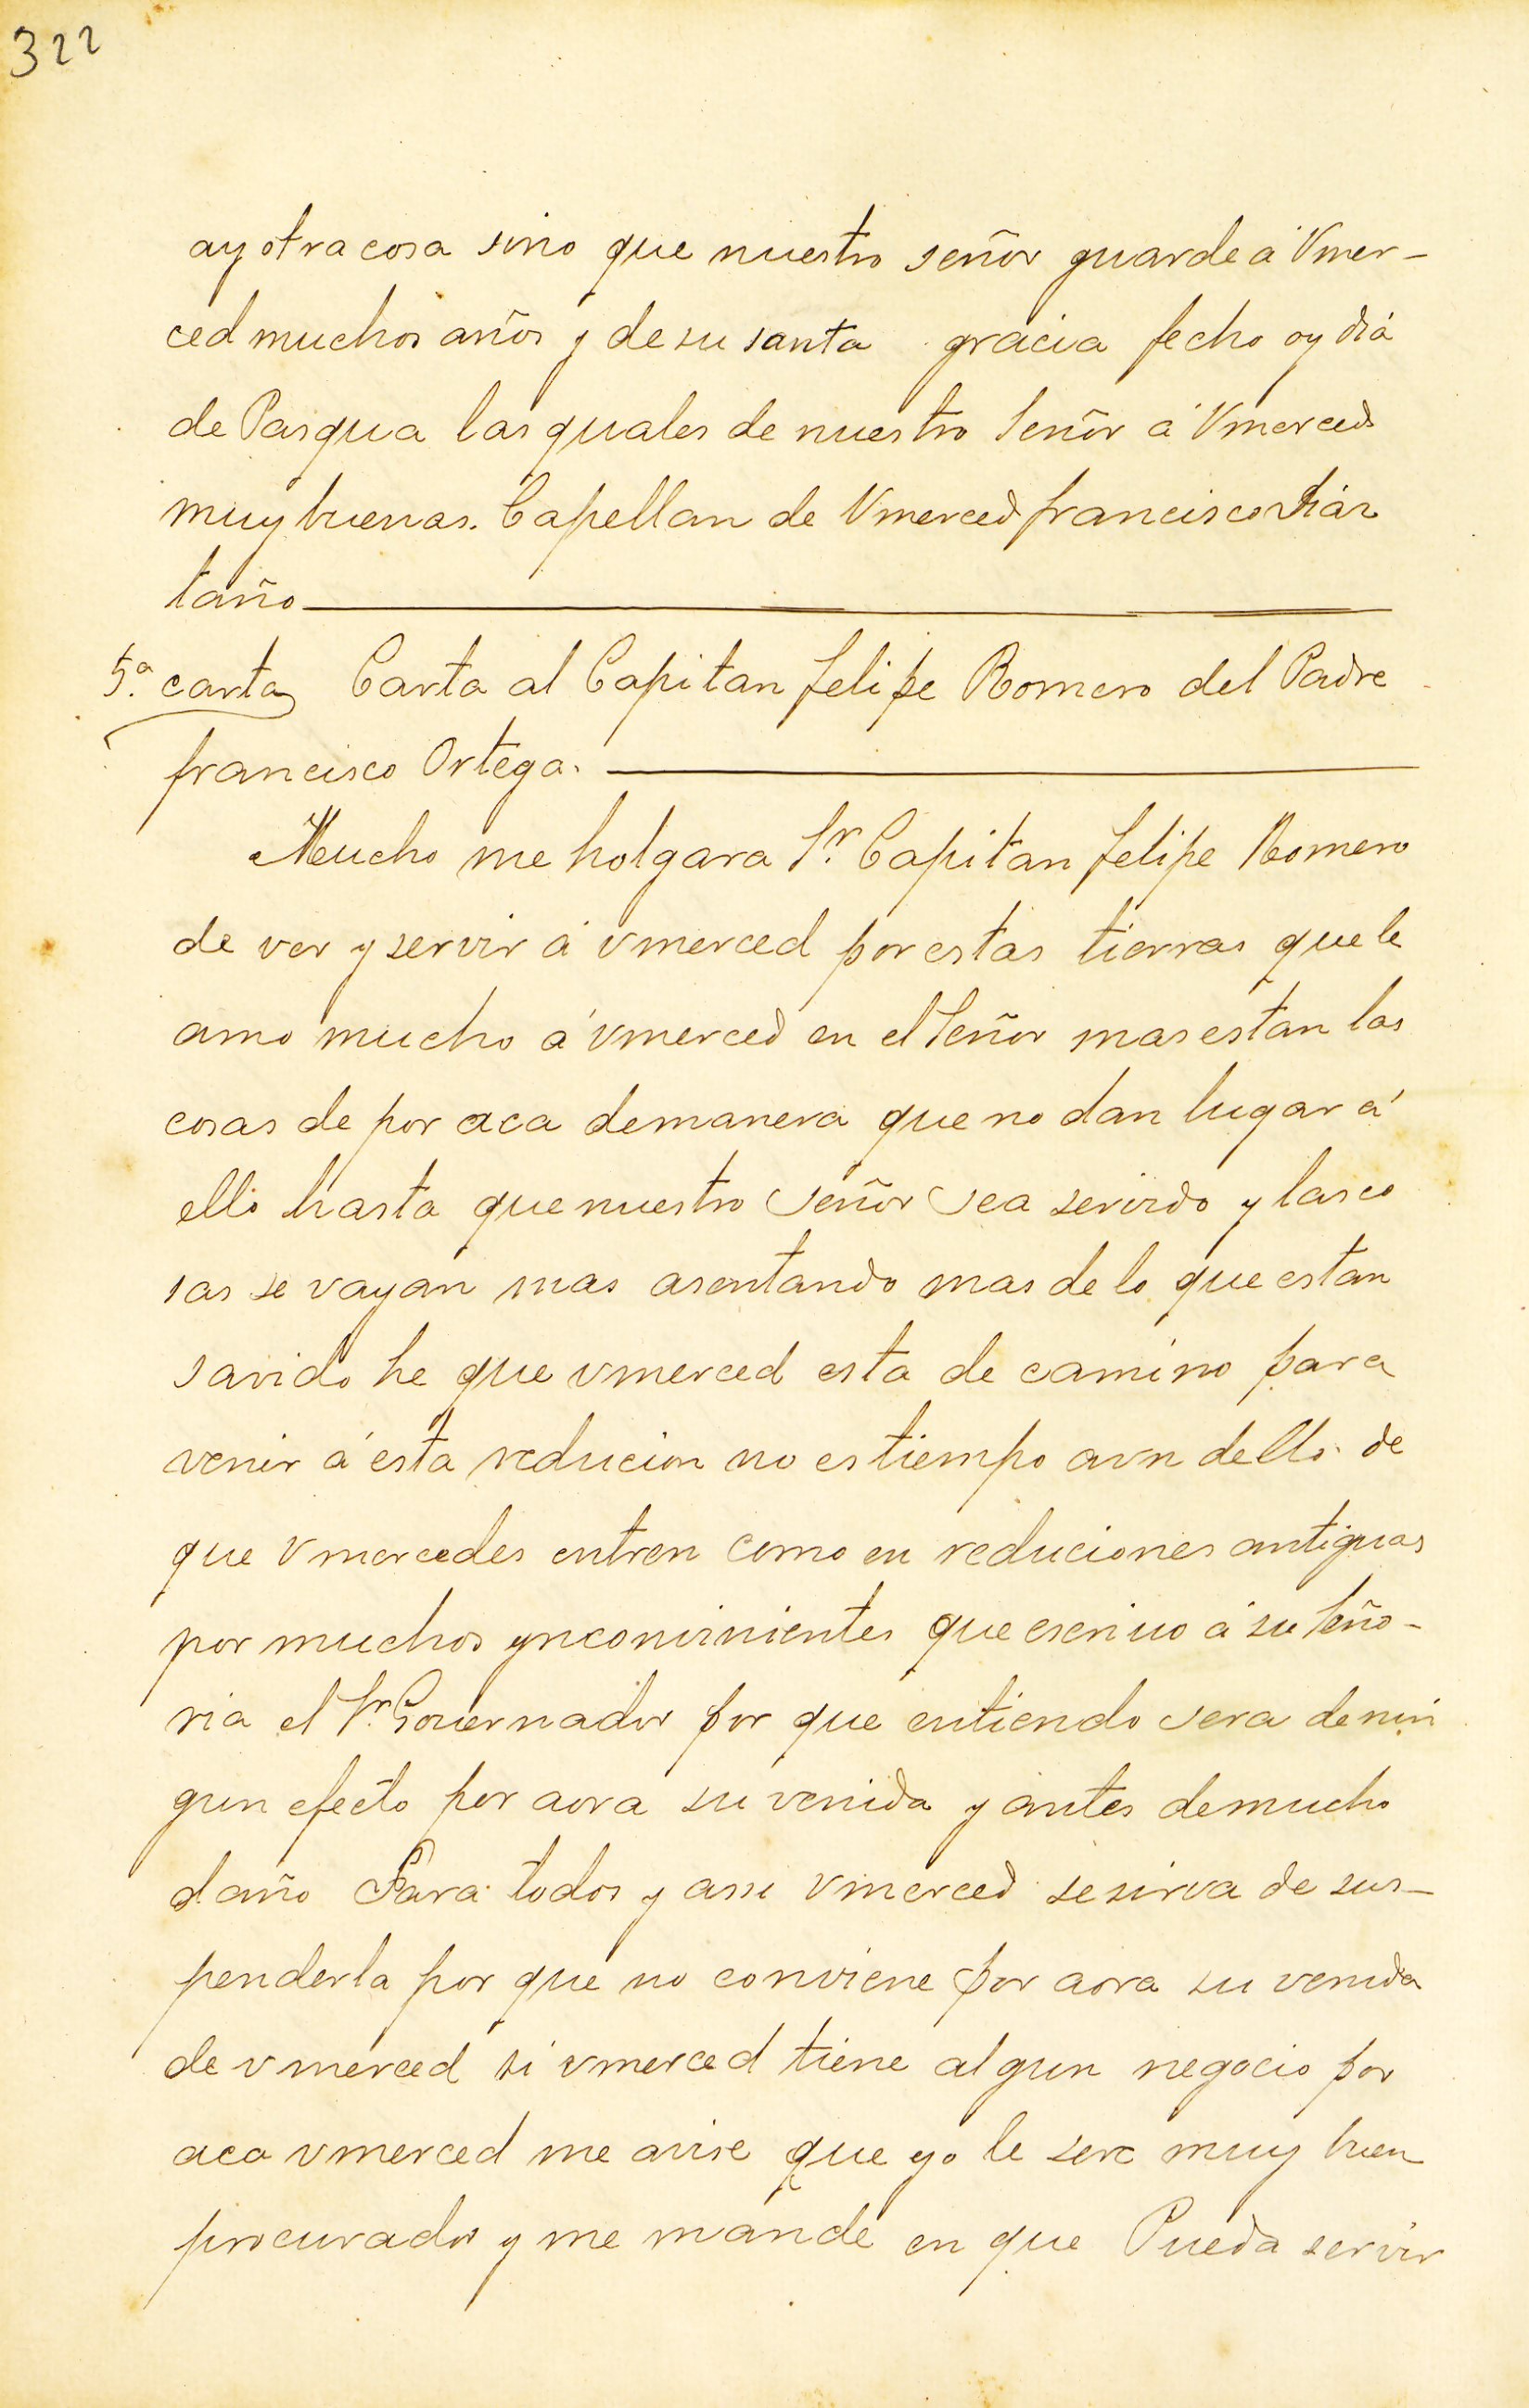 322
ay otra cosa sino que nuestro señor guarde á Vmer-
ced muchos años y de su santa gracia fecho oy dia
de Pasqua las quales de nuestro Señor á Vmerced
muy buenas. Capellan de Vmerced francisco Diaz
taño
5.ª carta Carta al Capitan felipe Romero del Padre
francisco Ortega.
Mucho me holgara Sr. Capitan felipe Romero
de ver y servir á vmerced por estas tierras que le
amo mucho á vmerced en el Señor mas estan las
cosas de por aca demanera que no dan lugar á
ello hasta que nuestro Señor sea servido y las co
sas se vayan mas asentando mas de lo que estan
savido he que vmerced esta de camino para
venir á esta reducion no es tiempo avn dello de
que Vmercedes entren como en reduciones antiguas
por muchos ynconvinientes que escriuo á su Seño-
ria el Sr. Gouernador por que entiendo sera de nin
gun efecto por aora su venida y antes demucho
daño Para todos y assi vmerced se sirva de sus-
penderla por que no conviene por aora su venida
de vmerced si vmerced tiene algun negocio por
aca vmerced me avise que yo le sere muy buen
procurador y me mande en que Pueda servir